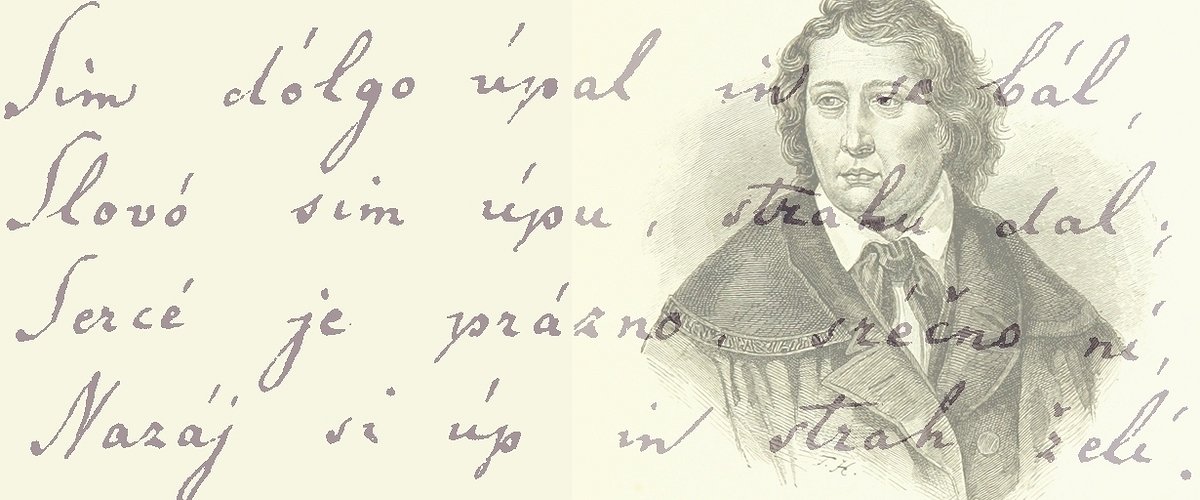 Sim dólgo úpal in se bál,
Slovó sim úpu, strahu dal;
Sercé je prázno, sréčno ní,
Nazáj si úp in strah želí.
T. H.